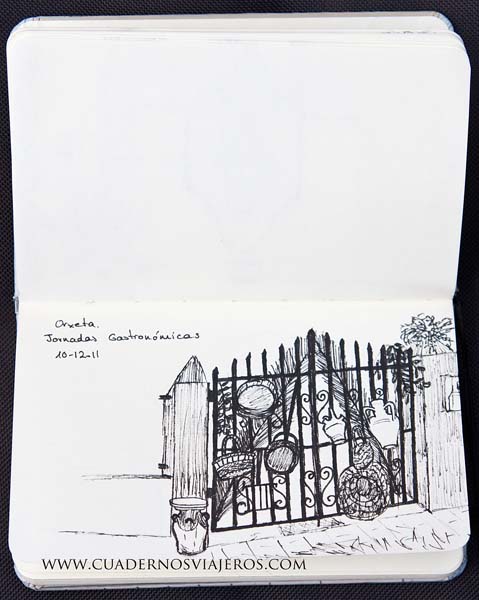 Orxeta.
Jornadas Gastronómicas
10-12-11
WWW.CUADERNOSVIAJEROS.COM